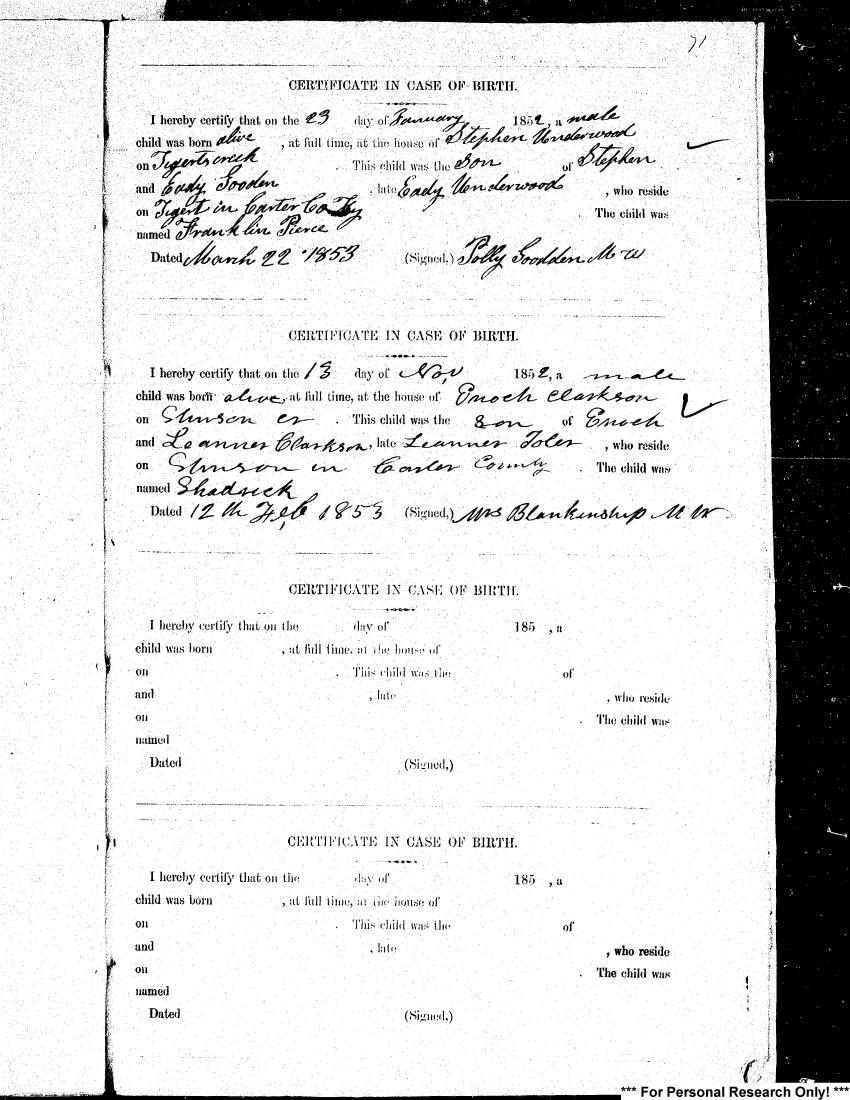 71
CERTIFICATE IN CASE OF BIRTH.
I hereby certify that on the 23 day of January 1852, a male
child was born alive, at full time, at the house of Stephen Underwood
on Tigerts creek. This child was the Son of Stephen
and Eady Gooden, late Eady Underwood, who reside
on Tigert in Carter Co Ky. The child was
named Franklin Pierce
Dated March 22 1853 (Signed,) Polly Goodden M W
CERTIFICATE IN CASE OF BIRTH.
I hereby certify that on the 13 day of Nov, 1852, a male
child was born alive, at full time, at the house of Enoch Clarkson
on Stinson cr. This child was the son of Enoch
and Leanner Clarkson, late Leanner Toler, who reside
on Stinson in Carter County. The child was
named Shadrick
Dated 12th Feb 1853 (Signed,) Mrs Blankinship M W
CERTIFICATE IN CASE OF BIRTH.
I hereby certify that on the day of 185 , a
child was born , at full time, at the house of
on . This child was the of
and , late , who reside
on . The child was
named
Dated (Signed,)
CERTIFICATE IN CASE OF BIRTH.
I hereby certify that on the day of 185 , a
child was born , at full time, at the house of
on . This child was the of
and , late , who reside
on . The child was
named
Dated (Signed,)
*** For Personal Research Only! ***